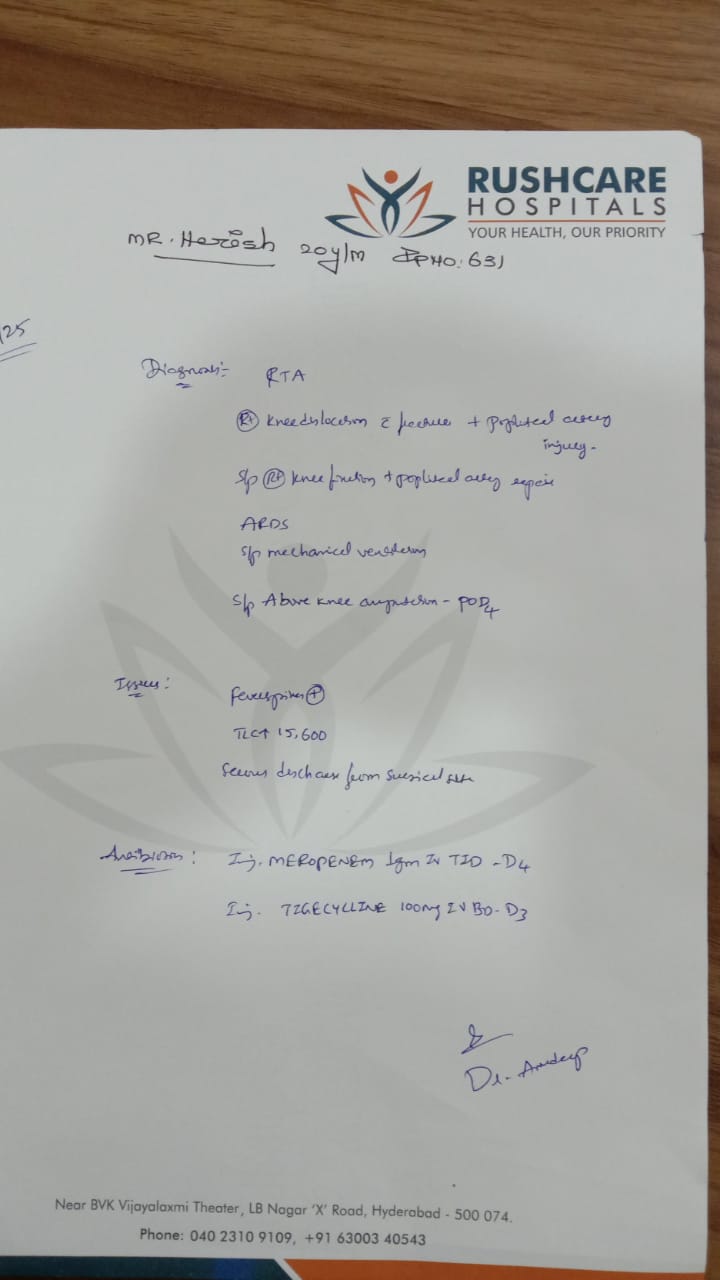 RUSHCARE
HOSPITALS
YOUR HEALTH, OUR PRIORITY
MR. Harish 20y/m IPNO: 631
/25
Diagnosis:- RTA
Rt knee dislocation c̄ fracture + popliteal artery
injury-
S/p Rt knee fixation + popliteal artery repair
ARDS
S/p mechanical ventilation
S/p Above knee amputation - POD4
Issues: Fever spikes +
TLC↑ 15,600
Serous discharge from surgical site
Antibiotics: Inj. MEROPENEM 1gm IV TID - D4
Inj. TIGECYCLINE 100mg IV BD - D3
Dr.
Near BVK Vijayalaxmi Theater, LB Nagar 'X' Road, Hyderabad - 500 074.
Phone: 040 2310 9109, +91 63003 40543